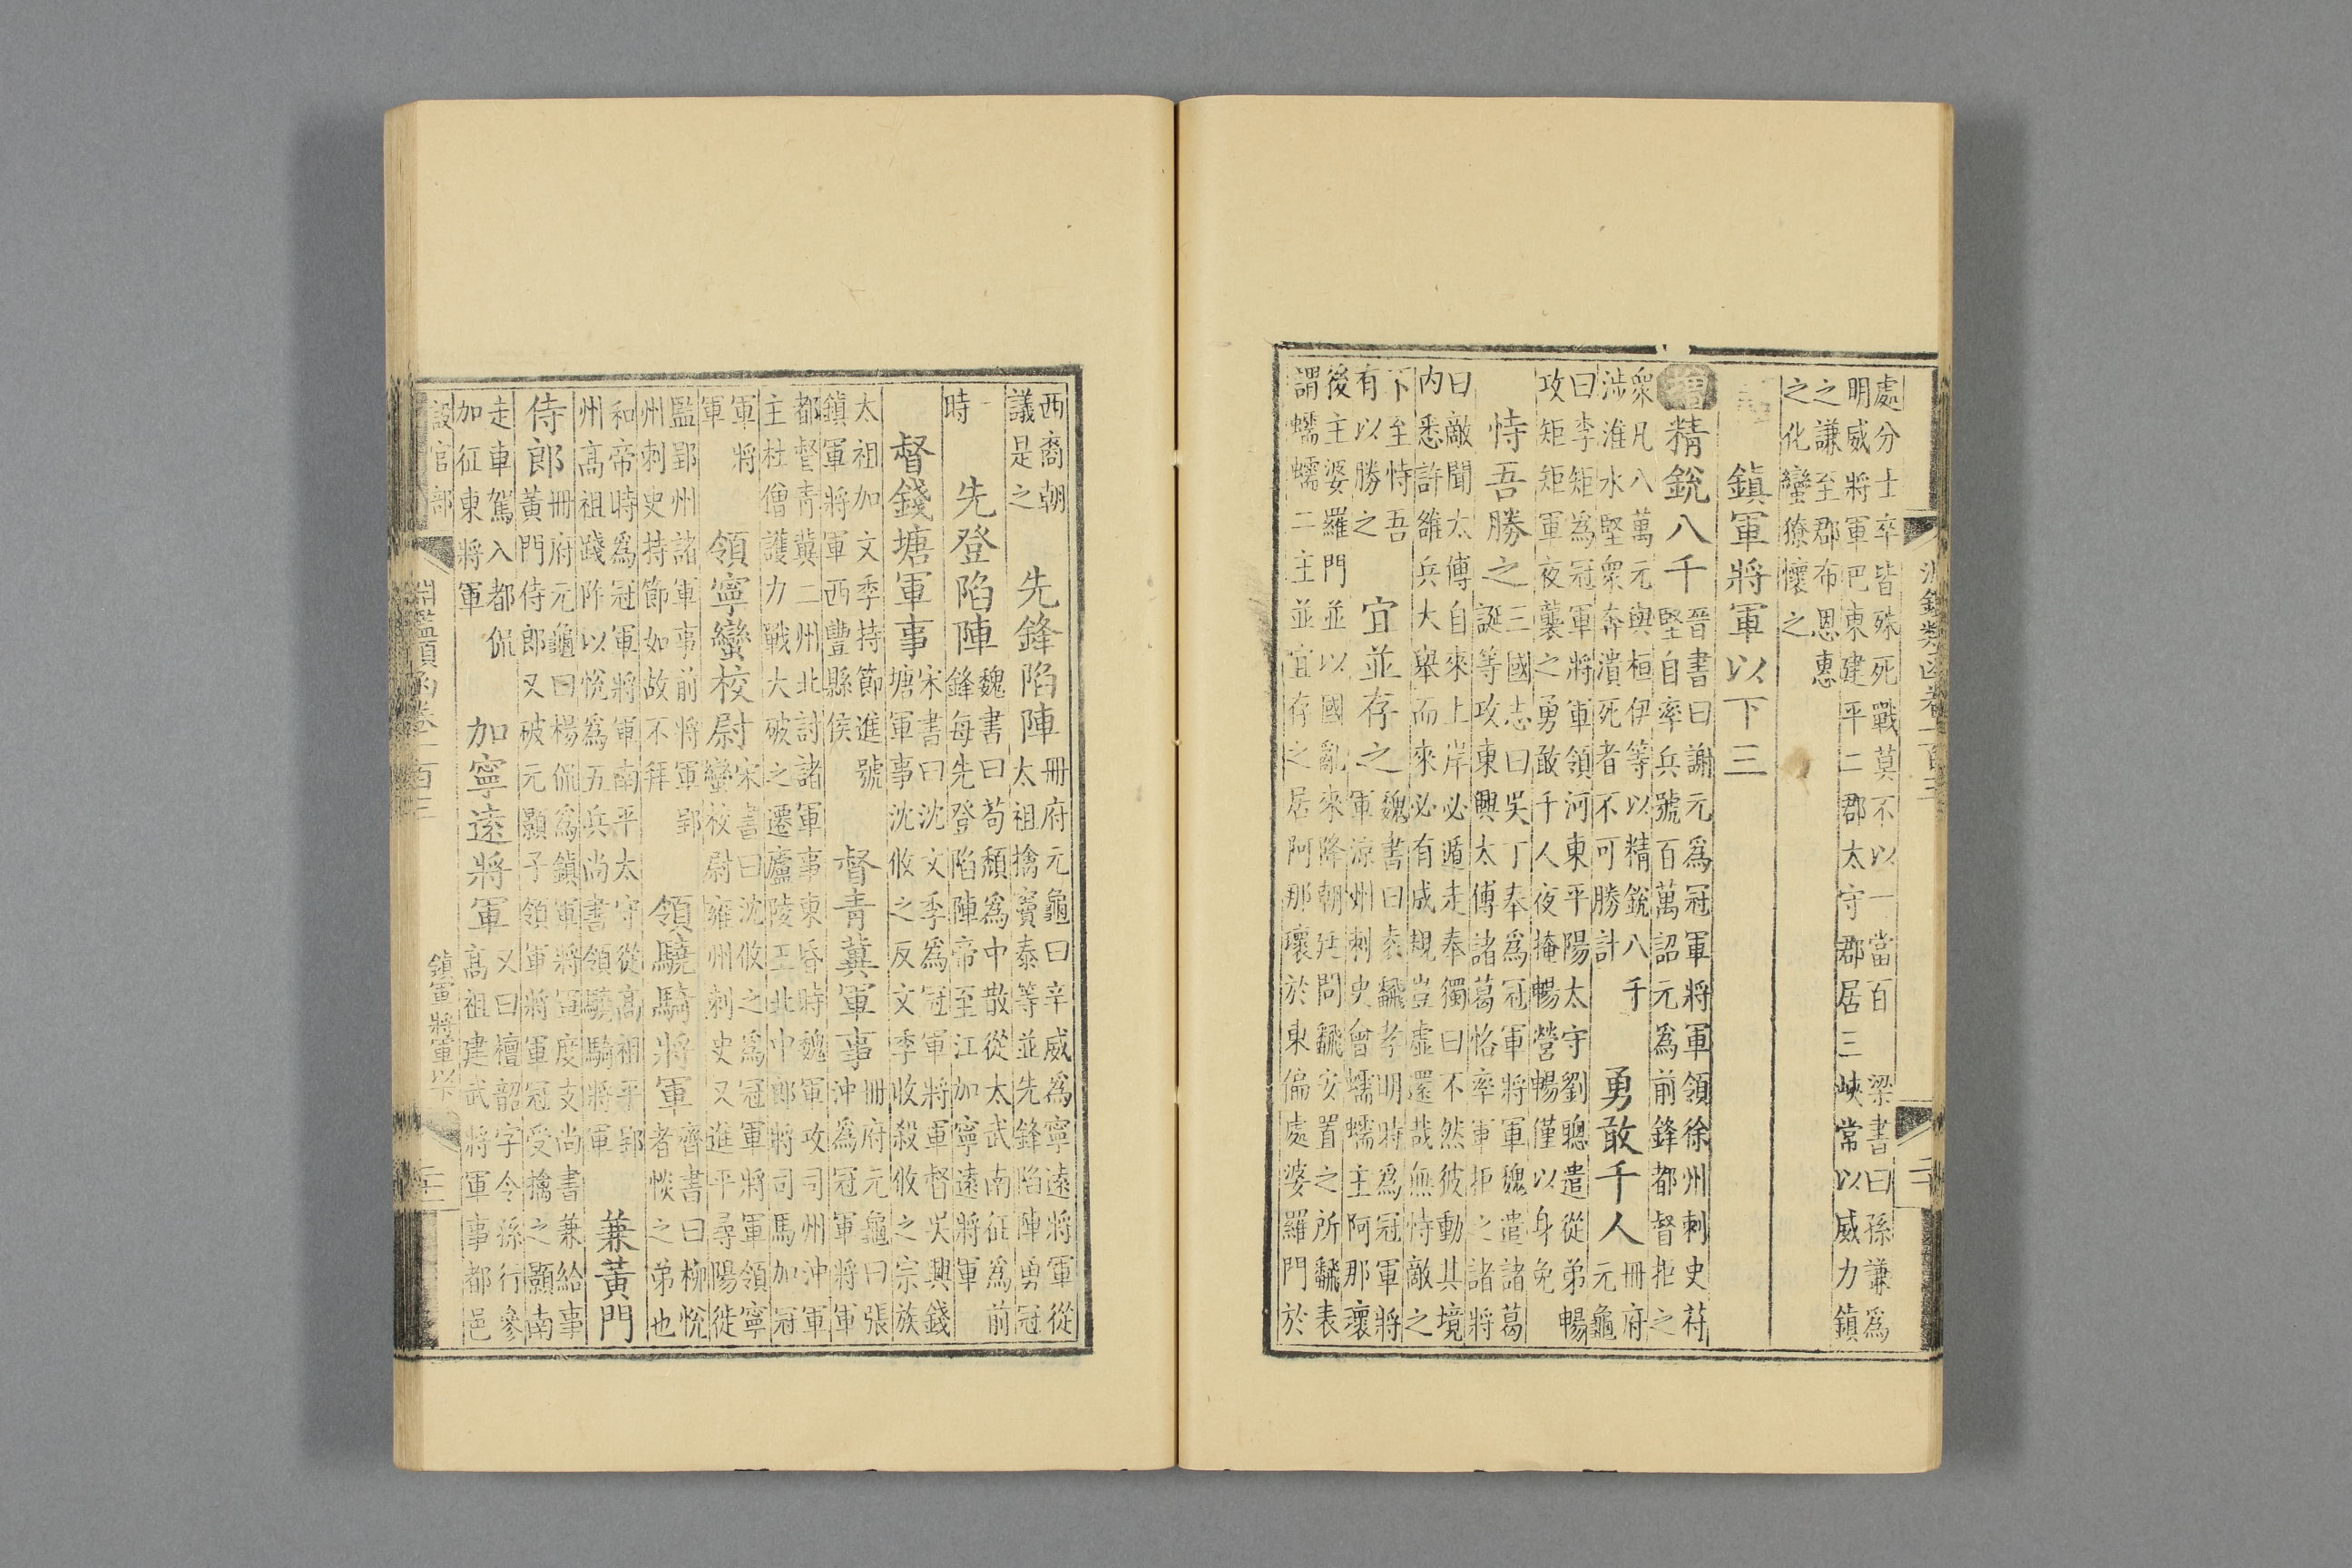 淵鑑類函卷一百三 二
處分士卒皆殊死戰莫不以一當百 梁書曰孫謙為
明威將軍巴東建平二郡太守郡居三峽常以威力鎮
之謙至郡布恩惠
之化蠻獠懷之
鎮軍將軍以下三
增 精銳八千
晉書曰謝元為冠軍將軍領徐州刺史苻
堅自率兵號百萬詔元為前鋒都督拒之
眾凡八萬元與桓伊等以精銳八千
涉淮水堅眾奔潰死者不可勝計
勇敢千人
冊府
元龜
曰李矩為冠軍將軍領河東平陽太守劉聰遣從弟暢
攻矩矩軍夜襲之勇敢千人夜掩暢營暢僅以身免
恃吾勝之
三國志曰吳丁奉為冠軍將軍魏遣諸葛
誕等攻東興太傅諸葛恪率軍拒之諸將
曰敵聞太傅自來上岸必遁走奉獨曰不然彼動其境
內悉許雒兵大舉而來必有成規豈虛還哉無恃敵之
下至恃吾
有以勝之
宜並存之
魏書曰袁飜孝明時為冠軍將
軍涼州刺史會蠕蠕主阿那瓌
後主婆羅門並以國亂來降朝廷問飜安置之所飜表
謂蠕蠕二主並宜存之居阿那瓌於東偏處婆羅門於
西裔朝
議是之
先鋒陷陣
冊府元龜曰辛威為寧遠將軍從
太祖擒竇泰等並先鋒陷陣勇冠
一
時
先登陷陣
魏書曰苟頹為中散從太武南征為前
鋒每先登陷陣帝至江加寧遠將軍
督錢塘軍事
宋書曰沈文季為冠軍將軍督吳興錢
塘軍事沈攸之反文季收殺攸之宗族
太祖加文季持節進號
鎮軍將軍西豐縣侯
督青冀軍事
冊府元龜曰張
沖為冠軍將軍
都督青冀二州北討諸軍事東昏時魏軍攻司州沖軍
主杜僧護力戰大破之遷廬陵王北中郎將司馬加冠
軍將
軍
領寧蠻校尉
宋書曰沈攸之為冠軍將軍領寧
蠻校尉雍州刺史又進平尋陽徙
監郢州諸軍事前將軍郢
州刺史持節如故不拜
領驍騎將軍
齊書曰柳悅
者惔之弟也
和帝時為冠軍將軍南平太守從高祖平郢
州高祖踐阼以悅為五兵尚書領驍騎將軍
兼黃門
侍郎
冊府元龜曰楊侃為鎮軍將軍度支尚書兼給事
黃門侍郎又破元顥子領軍將軍冠受擒之顥南
走車駕入都侃
加征東將軍
加寧遠將軍
又曰檀韶字令孫行參
高祖建武將軍事都邑
設官部 淵鑑類函卷一百三 鎮軍將軍以下 三